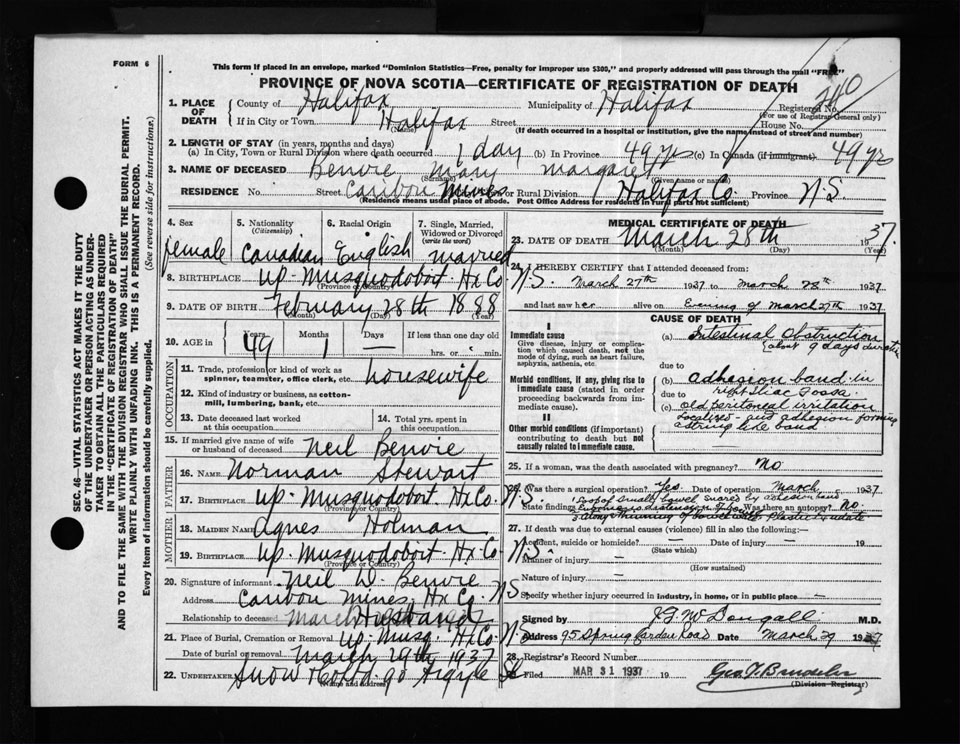 FORM 6
This form if placed in an envelope, marked "Dominion Statistics—Free, penalty for improper use $300," and properly addressed will pass through the mail "FREE"
PROVINCE OF NOVA SCOTIA—CERTIFICATE OF REGISTRATION OF DEATH
1. PLACE OF DEATH
County of Halifax Municipality of Halifax Registered No.
(For use of Registrar General only)
If in City or Town Halifax Street House No.
(Name) (If death occurred in a hospital or institution, give the name instead of street and number)
2. LENGTH OF STAY (in years, months and days)
(a) In City, Town or Rural Division where death occurred 1 day (b) In Province 49 yrs (c) In Canada (if immigrant) 49 yrs
3. NAME OF DECEASED Benvie Mary Margaret
(Surname) (Given name or names)
RESIDENCE No. Street Caribou Mines City, Town or Rural Division Halifax Co. Province N.S.
(Residence means usual place of abode. Post Office Address for residents in rural parts not sufficient)
4. Sex 5. Nationality (Citizenship) 6. Racial Origin 7. Single, Married, Widowed or Divorced (write the word)
female Canadian English married
8. BIRTHPLACE Up. Musquodoboit Hx Co N.S.
(Province or Country)
9. DATE OF BIRTH February 28th 1888
(Month) (Day) (Year)
10. AGE in Years Months Days If less than one day old
49 1 — hrs. or min.
OCCUPATION
11. Trade, profession or kind of work as spinner, teamster, office clerk, etc. housewife
12. Kind of industry or business, as cotton-mill, lumbering, bank, etc.
13. Date deceased last worked at this occupation
14. Total yrs. spent in this occupation
15. If married give name of wife or husband of deceased Neil Benvie
FATHER
16. NAME Norman Stewart
17. BIRTHPLACE Up. Musquodoboit Hx Co. N.S.
(Province or Country)
MOTHER
18. MAIDEN NAME Agnes Holman
19. BIRTHPLACE Up. Musquodoboit Hx Co N.S.
(Province or Country)
20. Signature of informant Neil D. Benvie
Address Caribou Mines Hx Co. N.S.
Relationship to deceased Husband
21. Place of Burial, Cremation or Removal Up. Musq. Hx Co. N.S.
Date of burial or removal March 29th 1937
22. UNDERTAKER Snow & Co Ltd. 90 Argyle St
(Name and Address)
MEDICAL CERTIFICATE OF DEATH
23. DATE OF DEATH March 28th 1937.
(Month) (Day) (Year)
24. I HEREBY CERTIFY that I attended deceased from:
March 27th 1937 to March 28th 1937
and last saw her alive on Evening of March 27th 1937
CAUSE OF DEATH
I
Immediate cause
Give disease, injury or complication which caused death, not the mode of dying, such as heart failure, asphyxia, asthenia, etc.
(a) Intestinal Obstruction
(about 9 days duration
due to
Morbid conditions, if any, giving rise to immediate cause (stated in order proceeding backwards from immediate cause).
(b) adhesion band in
due to right iliac fossa.
(c) old peritoneal irritation
localized and adhesion forming
a string like band
II
Other morbid conditions (if important) contributing to death but not causally related to immediate cause.
25. If a woman, was the death associated with pregnancy? No
26. Was there a surgical operation? Yes. Date of operation March 1937
State findings Loop of small bowel snared by adhesion band
Was there an autopsy? No
27. If death was due to external causes (violence) fill in also the following:
Accident, suicide or homicide? — Date of injury — 19
(State which)
Manner of injury —
(How sustained)
Nature of injury —
Specify whether injury occurred in industry, in home, or in public place —
Signed by J.G. McDougall M.D.
Address 95 Spring Garden Road Date March 29 1937
28. Registrar's Record Number
Filed MAR 31 1937 19
(Division Registrar)
SEC. 46—VITAL STATISTICS ACT MAKES IT THE DUTY
OF THE UNDERTAKER OR PERSON ACTING AS UNDER-
TAKER TO OBTAIN ALL THE PARTICULARS REQUIRED
IN THE "CERTIFICATE OF REGISTRATION OF DEATH"
AND TO FILE THE SAME WITH THE DIVISION REGISTRAR WHO SHALL ISSUE THE BURIAL PERMIT.
WRITE PLAINLY WITH UNFADING INK. THIS IS A PERMANENT RECORD.
Every item of information should be carefully supplied. (See reverse side for instructions.)